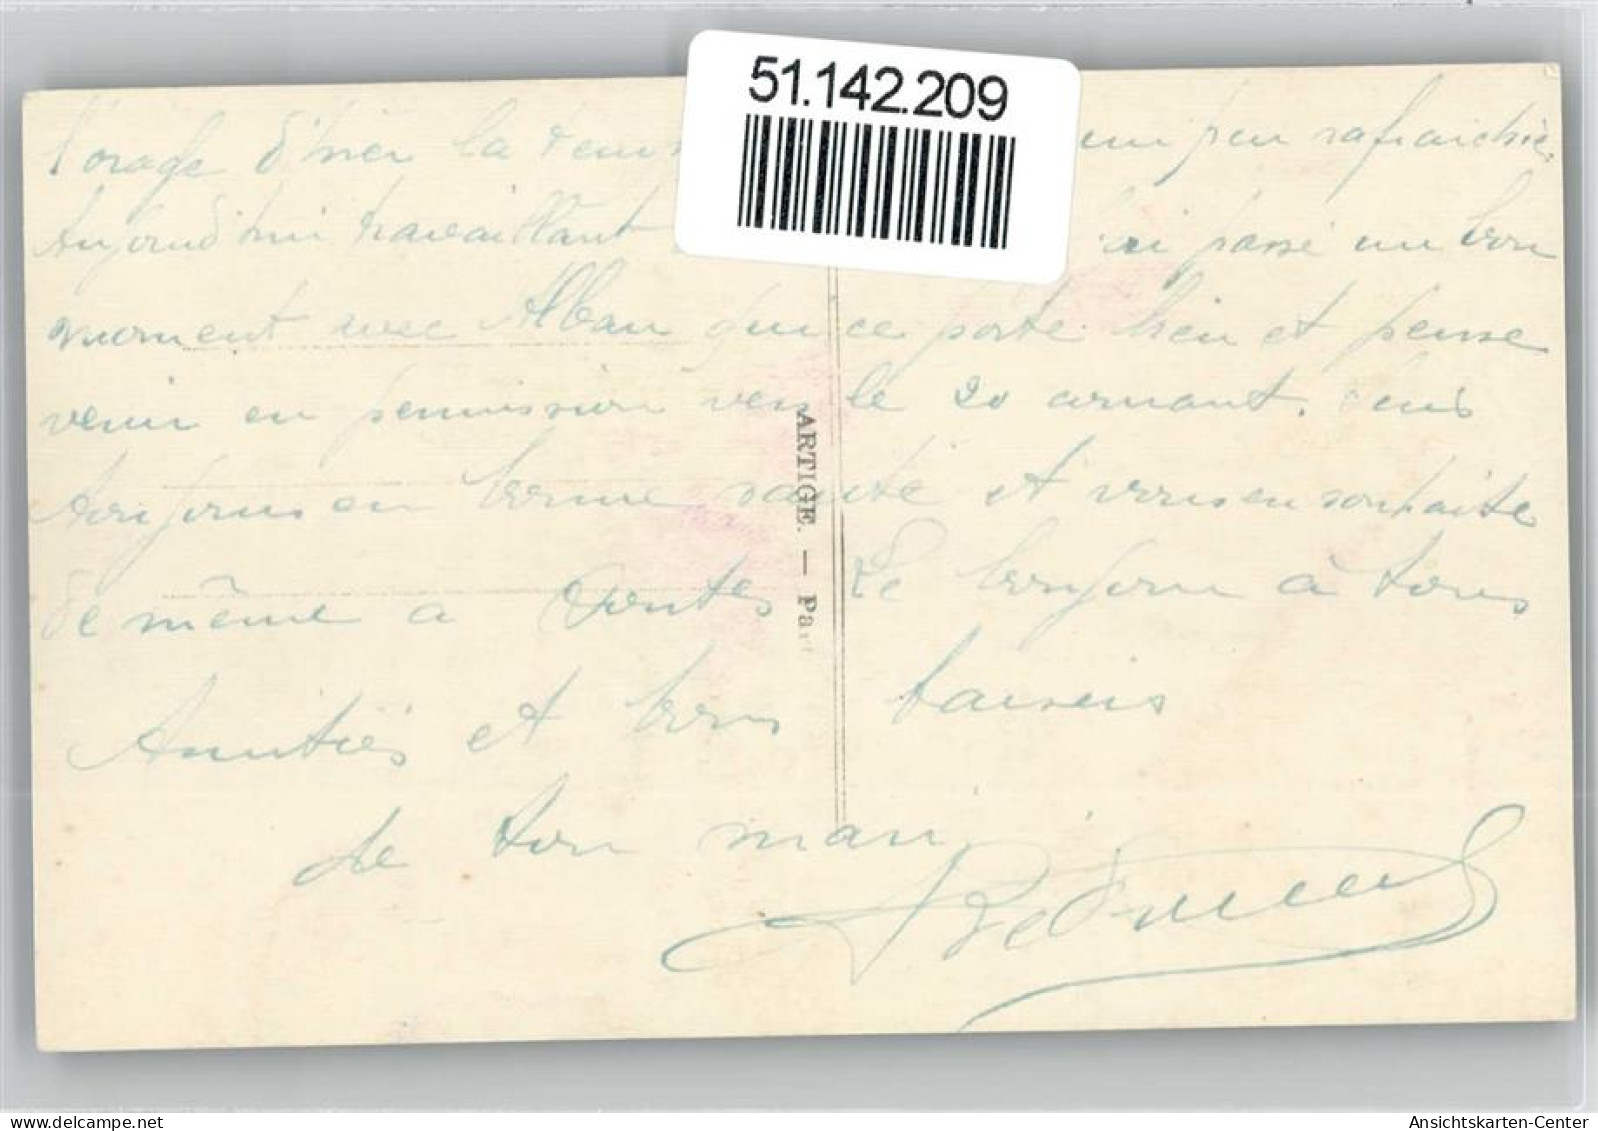 51.142.209
l'orage d'hier la un peu rafraichie.
Aujourd'hui travaillant ai passé un bon
moment avec Alban qui ce porte bien et pense
venir en permission vers le 20 courant. suis
toujours en bonne santé et vous en souhaite
de même a toutes Le bonjour à tous
Amitiés et bons baisers
de ton mari
ARTIGE. — Par
delcampe.net
Ansichtskarten-Center